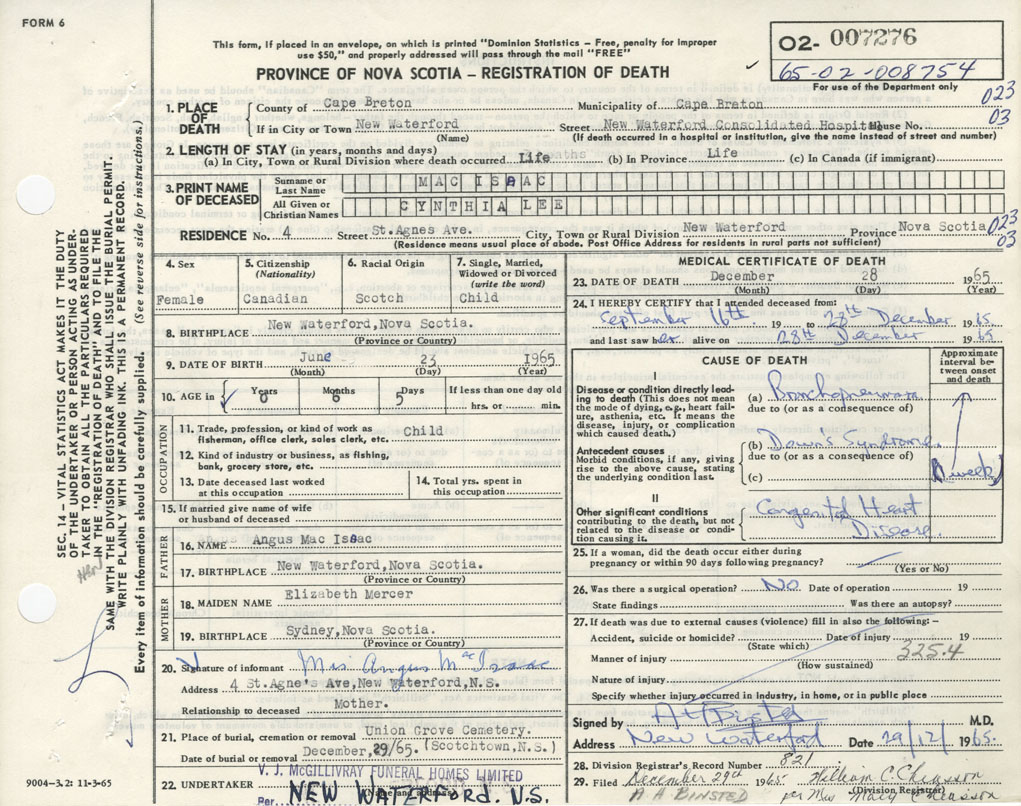 FORM 6
This form, if placed in an envelope, on which is printed "Dominion Statistics – Free, penalty for improper
use $50," and properly addressed will pass through the mail "FREE"
PROVINCE OF NOVA SCOTIA – REGISTRATION OF DEATH
02- 007276
65-02-008754
For use of the Department only
023
03
SEC. 14 – VITAL STATISTICS ACT MAKES IT THE DUTY
OF THE UNDERTAKER OR PERSON ACTING AS UNDER-
TAKER TO OBTAIN ALL THE PARTICULARS REQUIRED
IN THE "REGISTRATION OF DEATH" AND TO FILE THE
SAME WITH THE DIVISION REGISTRAR WHO SHALL ISSUE THE BURIAL PERMIT.
WRITE PLAINLY WITH UNFADING INK. THIS IS A PERMANENT RECORD.
Every item of information should be carefully supplied. (See reverse side for instructions.)
1. PLACE OF DEATH
County of Cape Breton Municipality of Cape Breton
If in City or Town New Waterford Street New Waterford Consolidated Hospital House No.
(Name) (If death occurred in a hospital or institution, give the name instead of street and number)
2. LENGTH OF STAY (in years, months and days)
(a) In City, Town or Rural Division where death occurred Life (b) In Province Life (c) In Canada (if immigrant)
3. PRINT NAME OF DECEASED
Surname or Last Name MAC ISAAC
All Given or Christian Names CYNTHIA LEE
RESIDENCE No. 4 Street St.Agnes Ave. City, Town or Rural Division New Waterford Province Nova Scotia 023
03
(Residence means usual place of abode. Post Office Address for residents in rural parts not sufficient)
4. Sex
Female
5. Citizenship (Nationality)
Canadian
6. Racial Origin
Scotch
7. Single, Married, Widowed or Divorced (write the word)
Child
8. BIRTHPLACE New Waterford,Nova Scotia.
(Province or Country)
9. DATE OF BIRTH June 23 1965
(Month) (Day) (Year)
10. AGE in Years Months Days If less than one day old
0 6 5 hrs. or min.
OCCUPATION
11. Trade, profession, or kind of work as
fisherman, office clerk, sales clerk, etc. Child
12. Kind of industry or business, as fishing,
bank, grocery store, etc.
13. Date deceased last worked
at this occupation
14. Total yrs. spent in
this occupation
15. If married give name of wife
or husband of deceased
FATHER
16. NAME Angus Mac Isaac
17. BIRTHPLACE New Waterford,Nova Scotia.
(Province or Country)
MOTHER
18. MAIDEN NAME Elizabeth Mercer
19. BIRTHPLACE Sydney,Nova Scotia.
(Province or Country)
20. Signature of informant Mrs. Angus MacIsaac
Address 4 St.Agne's Ave,New Waterford,N.S.
Relationship to deceased Mother.
21. Place of burial, cremation or removal Union Grove Cemetery.
Date of burial or removal December,29/65. (Scotchtown,N.S.)
22. UNDERTAKER V. J. McGILLIVRAY FUNERAL HOMES LIMITED
(Name and address)
Per NEW WATERFORD. N.S.
9004-3.2: 11-3-65
MEDICAL CERTIFICATE OF DEATH
23. DATE OF DEATH December 28 1965
(Month) (Day) (Year)
24. I HEREBY CERTIFY that I attended deceased from:
September 16th 19 to 28th December 1965
and last saw her alive on 28th December 1965
CAUSE OF DEATH
Approximate interval between onset and death
I
Disease or condition directly lead-
ing to death (This does not mean
the mode of dying, e.g., heart fail-
ure, asthenia, etc. It means the
disease, injury, or complication
which caused death.)
(a) Bronchopneumonia
due to (or as a consequence of)
Antecedent causes
Morbid conditions, if any, giving
rise to the above cause, stating
the underlying condition last.
(b) Down's Syndrome.
due to (or as a consequence of)
(c)
(1 week)
II
Other significant conditions
contributing to the death, but not
related to the disease or condi-
tion causing it.
Congenital Heart
Disease.
25. If a woman, did the death occur either during
pregnancy or within 90 days following pregnancy?
(Yes or No)
26. Was there a surgical operation? NO Date of operation 19
State findings Was there an autopsy?
27. If death was due to external causes (violence) fill in also the following:–
Accident, suicide or homicide? Date of injury 19
(State which)
325.4
Manner of injury
(How sustained)
Nature of injury
Specify whether injury occurred in industry, in home, or in public place
Signed by A H Binsted M.D.
Address New Waterford Date 29/12/ 1965.
28. Division Registrar's Record Number 821
29. Filed December 29th 1965 William C. Chiasson
(Division Registrar)
A H BINSTED per Mrs Mary Chiasson